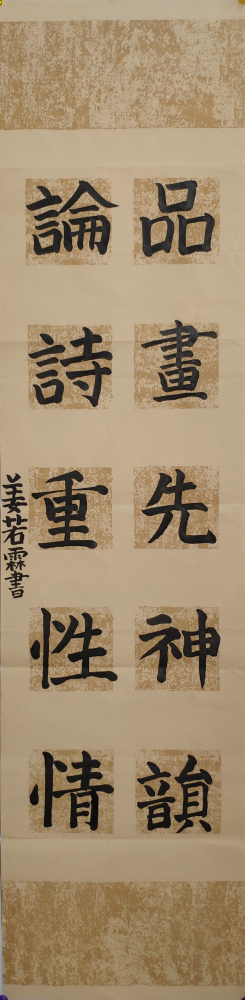 品畫先神韻
論詩重性情
姜若霖書